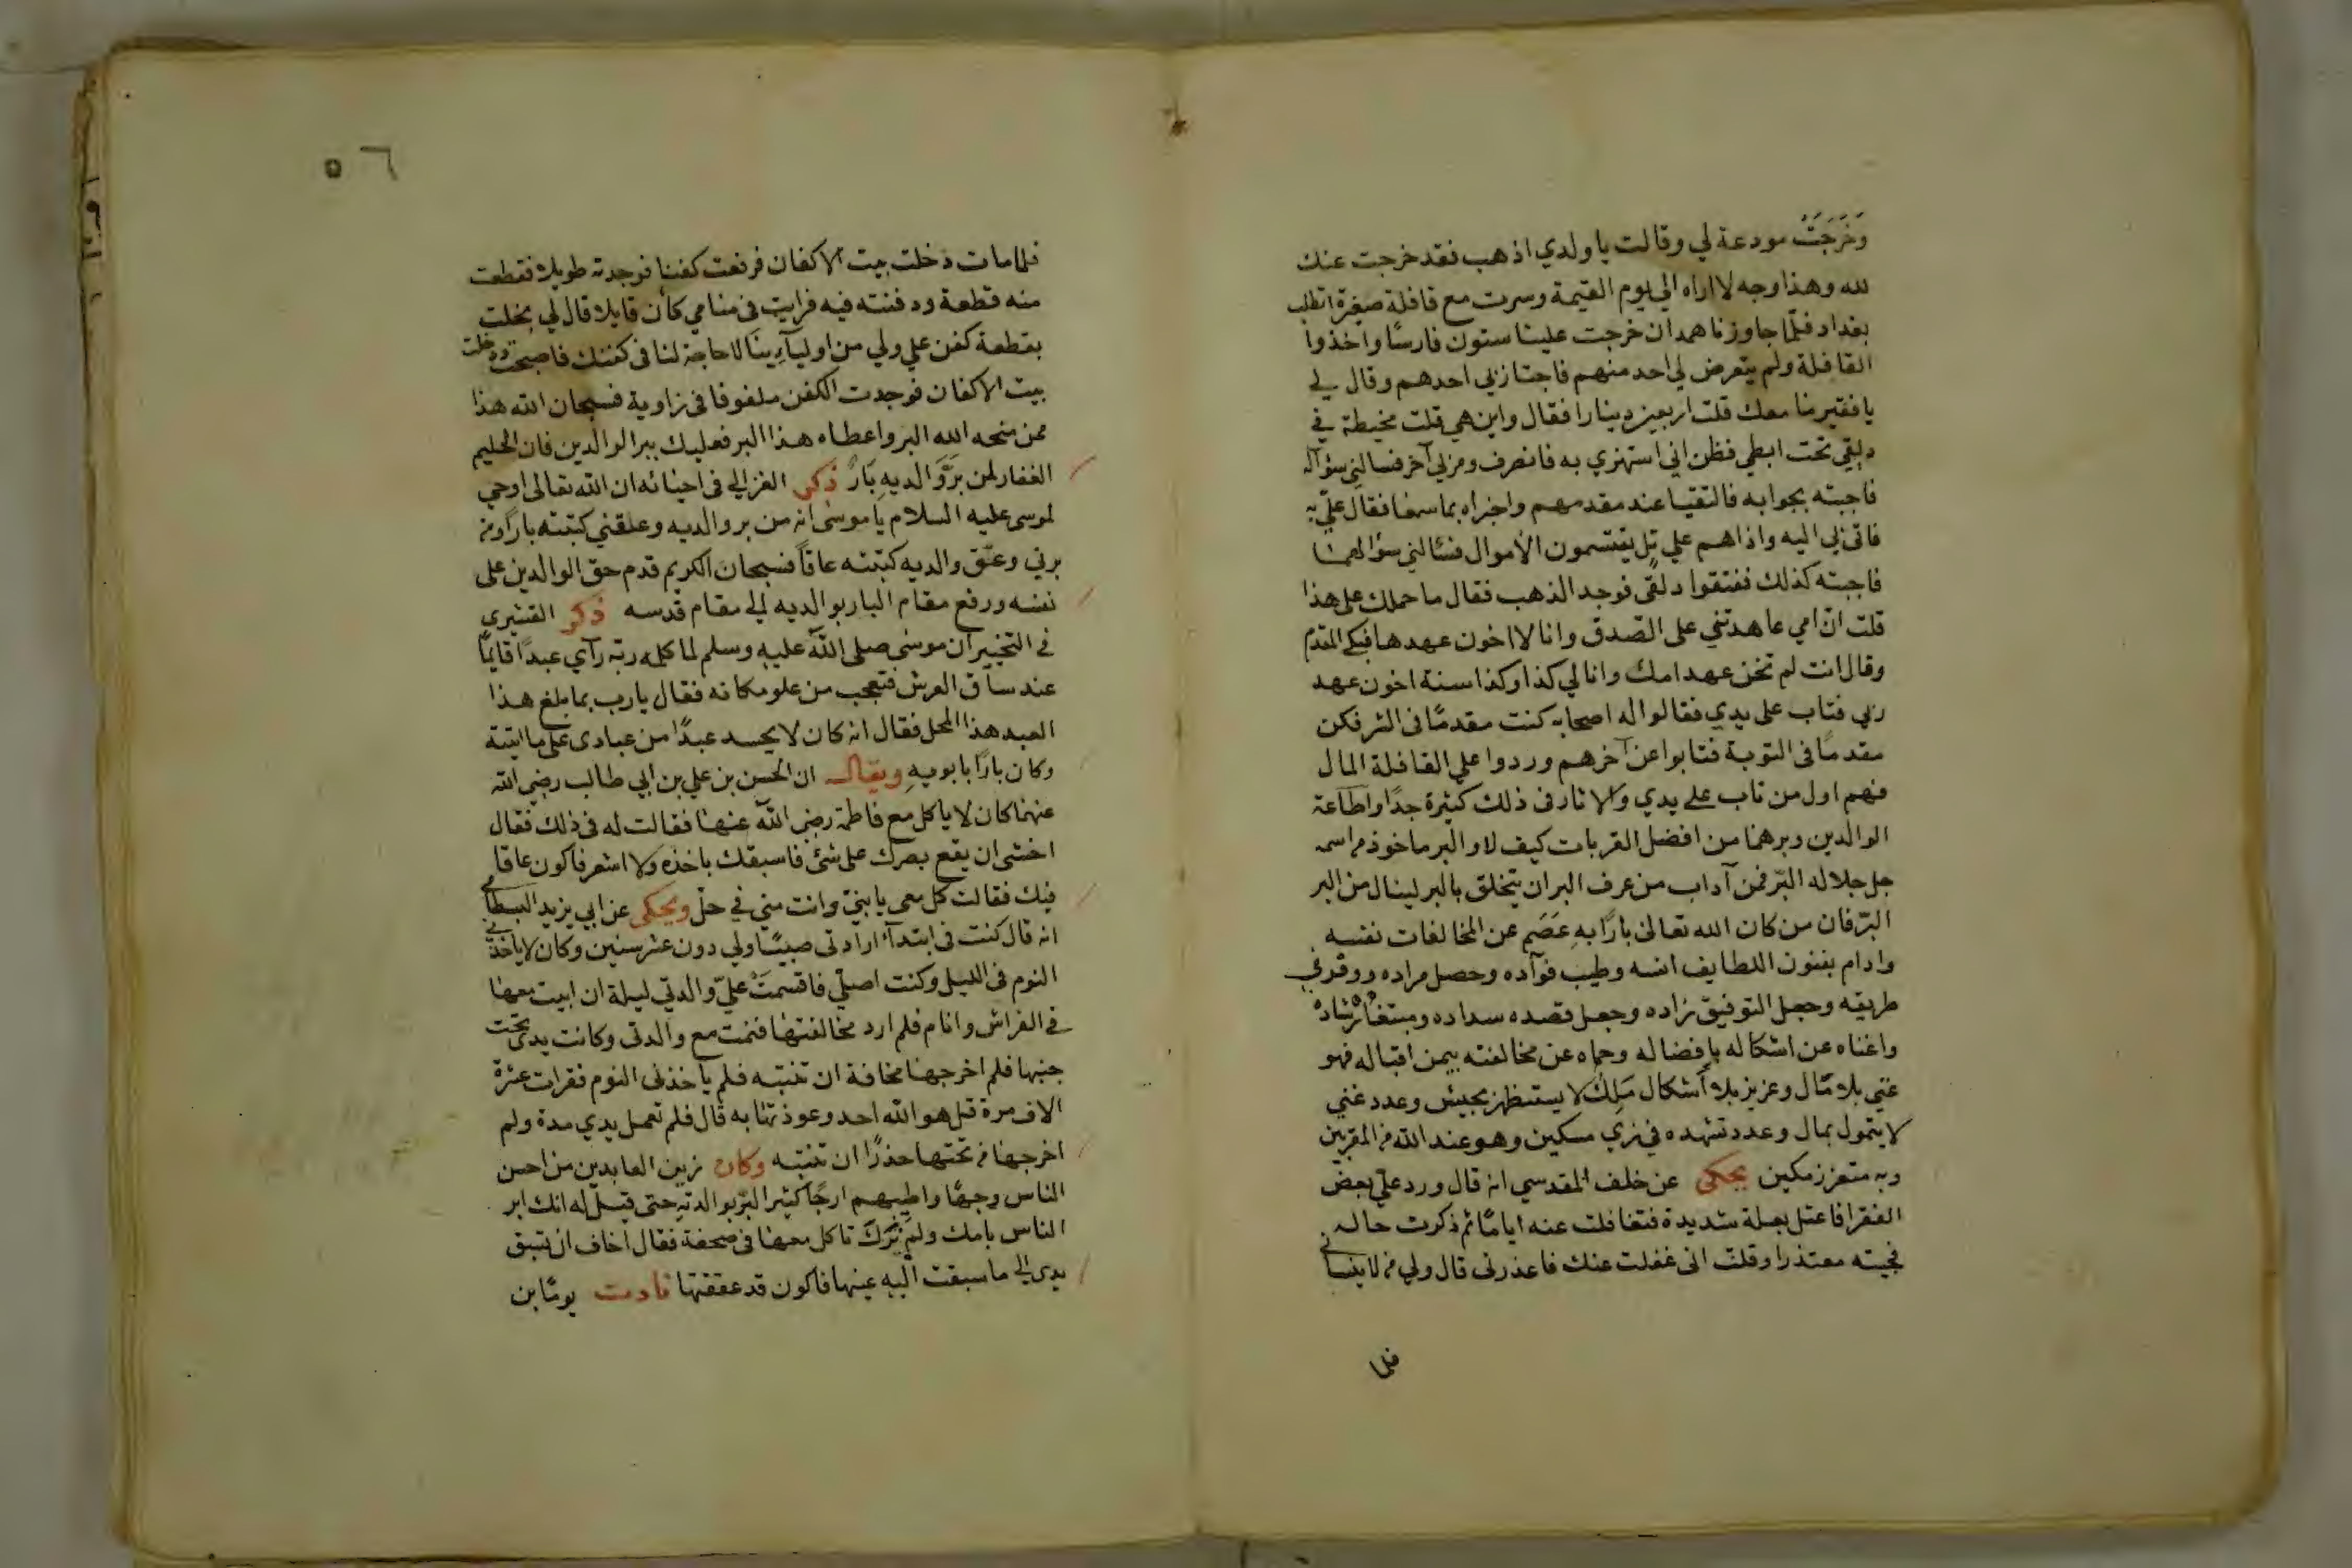 وَخَرَجَتْ مودعة لي وقالت يا ولدي اذهب فقد خرجت عنك
لله وهذا وجه لا اراه الي يوم القيمة وسرت مع قافلة صغيرة اتطلب
بغداد فلمّا جاوزنا همدان خرجت علينا ستون فارسًا واخذوا
القافلة ولم يتعرض لي احد منهم فاجتاز بي احدهم وقال لي
يا فقير ما معك قلت اربعين دينارا فقال واين هي قلت مخيطة في
دلقي تحت ابطي فظن اني استهزي به فانصرف ومر بي آخر فسالني سؤآله
فاجبته بجوابه فالتقيا عند مقدمهم واخبراه بما سمعا فقال عليّ به
فاتى بي اليه واذا هم علي تل يقتسمون الأموال فسئالني سؤالهما
فاجبته كذلك ففتقوا دلقي فوجد الذهب فقال ما حملك على هذا
قلت انّ امي عاهدتني على الصّدق وانا لا اخون عهدها فبكى المقدم
وقال انت لم تخن عهد امك وانا لي كذا وكذا سنة اخون عهد
ربي فتاب على يدي فقالوا له اصحابه كنت مقدمًا في الشر فكن
مقدمًا في التوبة فتابوا عن آخرهم وردوا علي القافلة المال
فهم اول من تاب علي يدي والاثار في ذلك كثيرة جدًا واطاعة
الوالدين وبرهما من افضل القربات كيف لا والبر ماخوذ من اسمه
جل جلاله البّر فمن آداب من عرف البر ان يتخلق بالبر لينال من البر
البرّ فان من كان الله تعالى بارًا بهِ عَصَم عن المخالفات نفسه
وادام بفنون اللطايف انسه وطيب فوآده وحصل مراده ووفر في
طريقه وجعل التوفيق زاده وجعل قصده سداده ومبتغاه رشاده
واغناه عن اشكاله بافضاله وحماه عن مخالفته بيمن اقباله فهو
غني بلا مال وعزيز بلا أشكال مَلِك لا يستظهر بجيش وعدد غني
لا يتمول بمال وعدد تشهده في زي مسكين وهو عند الله من المقربين
وبه متعزز مكين يحكى عن خلف المقدسي انه قال ورد عليّ بعض
الفقرا فاعتل بعلة شديدة فتغافلت عنه ايامًا ثم ذكرت حاله
فجيته معتذرا وقلت اني غفلت عنك فاعذرني قال ولي من لا ينساني
فلما
٥٦
فلما مات دخلت بيت الاكفان فرفعت كفنا فوجدته طويلا فقطعت
منه قطعة ودفنته فيه فرايت في منامي كأن قايلا قال لي بخلت
بقطعة كفن علي ولي من اوليآئينا لا حاجة لنا في كفنك فاصبحت ودخلت
بيت الاكفان فوجدت الكفن ملفوفا في زاوية فسبحان الله هذا
ممن منحه الله البر واعطاه هذا البر فعليك ببر الوالدين فان الحليم
الغفار لمن برَّ والديهِ بَارٌ ذكر الغزالي في احيائه ان الله تعالى اوحي
لموسى عليه السلام يا موسى انه من بر والديه وعقني كتبته بارًا ومن
برني وعّق والديه كتبته عاقاً فسبحان الكريم قدم حق الوالدين على
نفسه ورفع مقام البار بوالديه الي مقام قدسه ذكر القشيري
في التحبير ان موسى صلى الله عليه وسلم لما كلمه ربّه رآي عبدًا قايمًا
عند ساق العرش فتعجب من علو مكانه فقال يا رب بما بلغ هذا
العبد هذا المحل فقال انه كان لا يحسد عبدًا من عبادى على ما اتيته
وكان بارًا بابويهِ ويقال ان الحسن بن علي بن ابي طالب رضي الله
عنهما كان لا ياكل مع فاطمة رضى اللّه عنها فقالت له في ذلك فقال
اخشى ان يقع بصرك على شئ فاسبقك باخذه ولا اشعر فاكون عاقا
فيك فقالت كل معي يا بنيّ وانت مني في حلّ ويحكى عن ابي يزيد البسطامي
انه قال كنت في ابتدآء ارادتي صبيًا ولي دون عشر سنين وكان لا ياخذني
النوم في الليل وكنت اصلّي فاقسمَتْ عليّ والدتي ليلة ان ابيت معها
في الفراش وانام فلم ارد مخالفتها فنمت مع والدتي وكانت يدي تحت
جنبها فلم اخرجها مخافة ان تنتبه فلم ياخذنى النوم فقرات عشرة
الاف مرة قل هو الله احد وعوذتها به قال فلم تعمل يدي مدة ولم
اخرجها من تحتها حذرًا ان تنتبه وكان زين العابدين من احسن
الناس وجهًا واطيبهم ارجًا كثير البّر بوالدتهِ حتى قيل له انك ابر
الناس بامك ولم نَرَكَ تاكل معها في صحفة فقال اخاف ان تسبق
يدي الي ما سبقت اليهِ عينها فاكون قد عققتها نادت يومًا بن